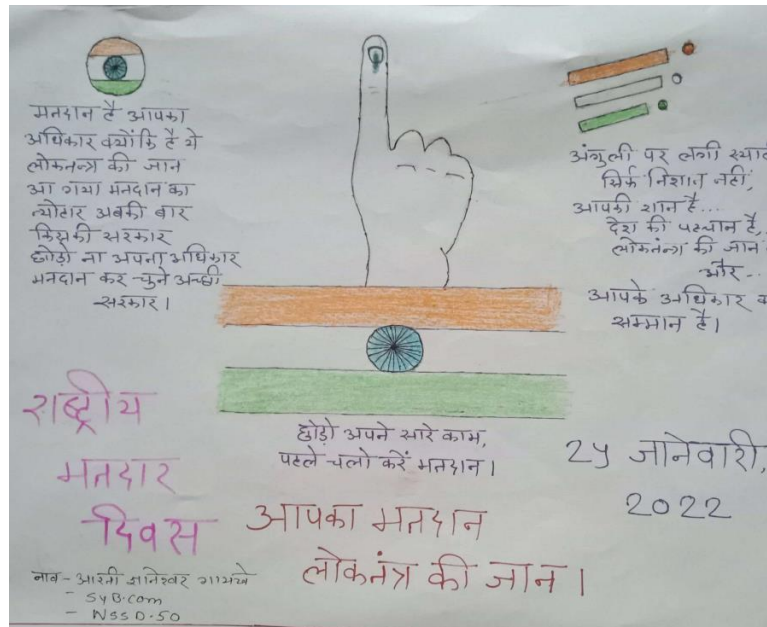 मतदान है आपका
अधिकार क्योंकि है ये
लोकतन्त्र की जान
आ गया मतदान का
त्योहार अबकी बार
किसकी सरकार
छोड़ो ना अपना अधिकार
मतदान कर चुने अच्छी
सरकार।
अंगुली पर लगी
सिर्फ निशान नहीं,
आपकी शान है...
देश की पहचान है,..
लोकतंत्र की जान
और..
आपके अधिकार
सम्मान है।
छोड़ो अपने सारे काम,
पहले चलो करें मतदान।
राष्ट्रीय
मतदार
दिवस
25 जानेवारी,
2022
आपका मतदान
लोकतंत्र की जान।
नाव - आरती ज्ञानेश्वर
- SyB.com
- NSS D-50